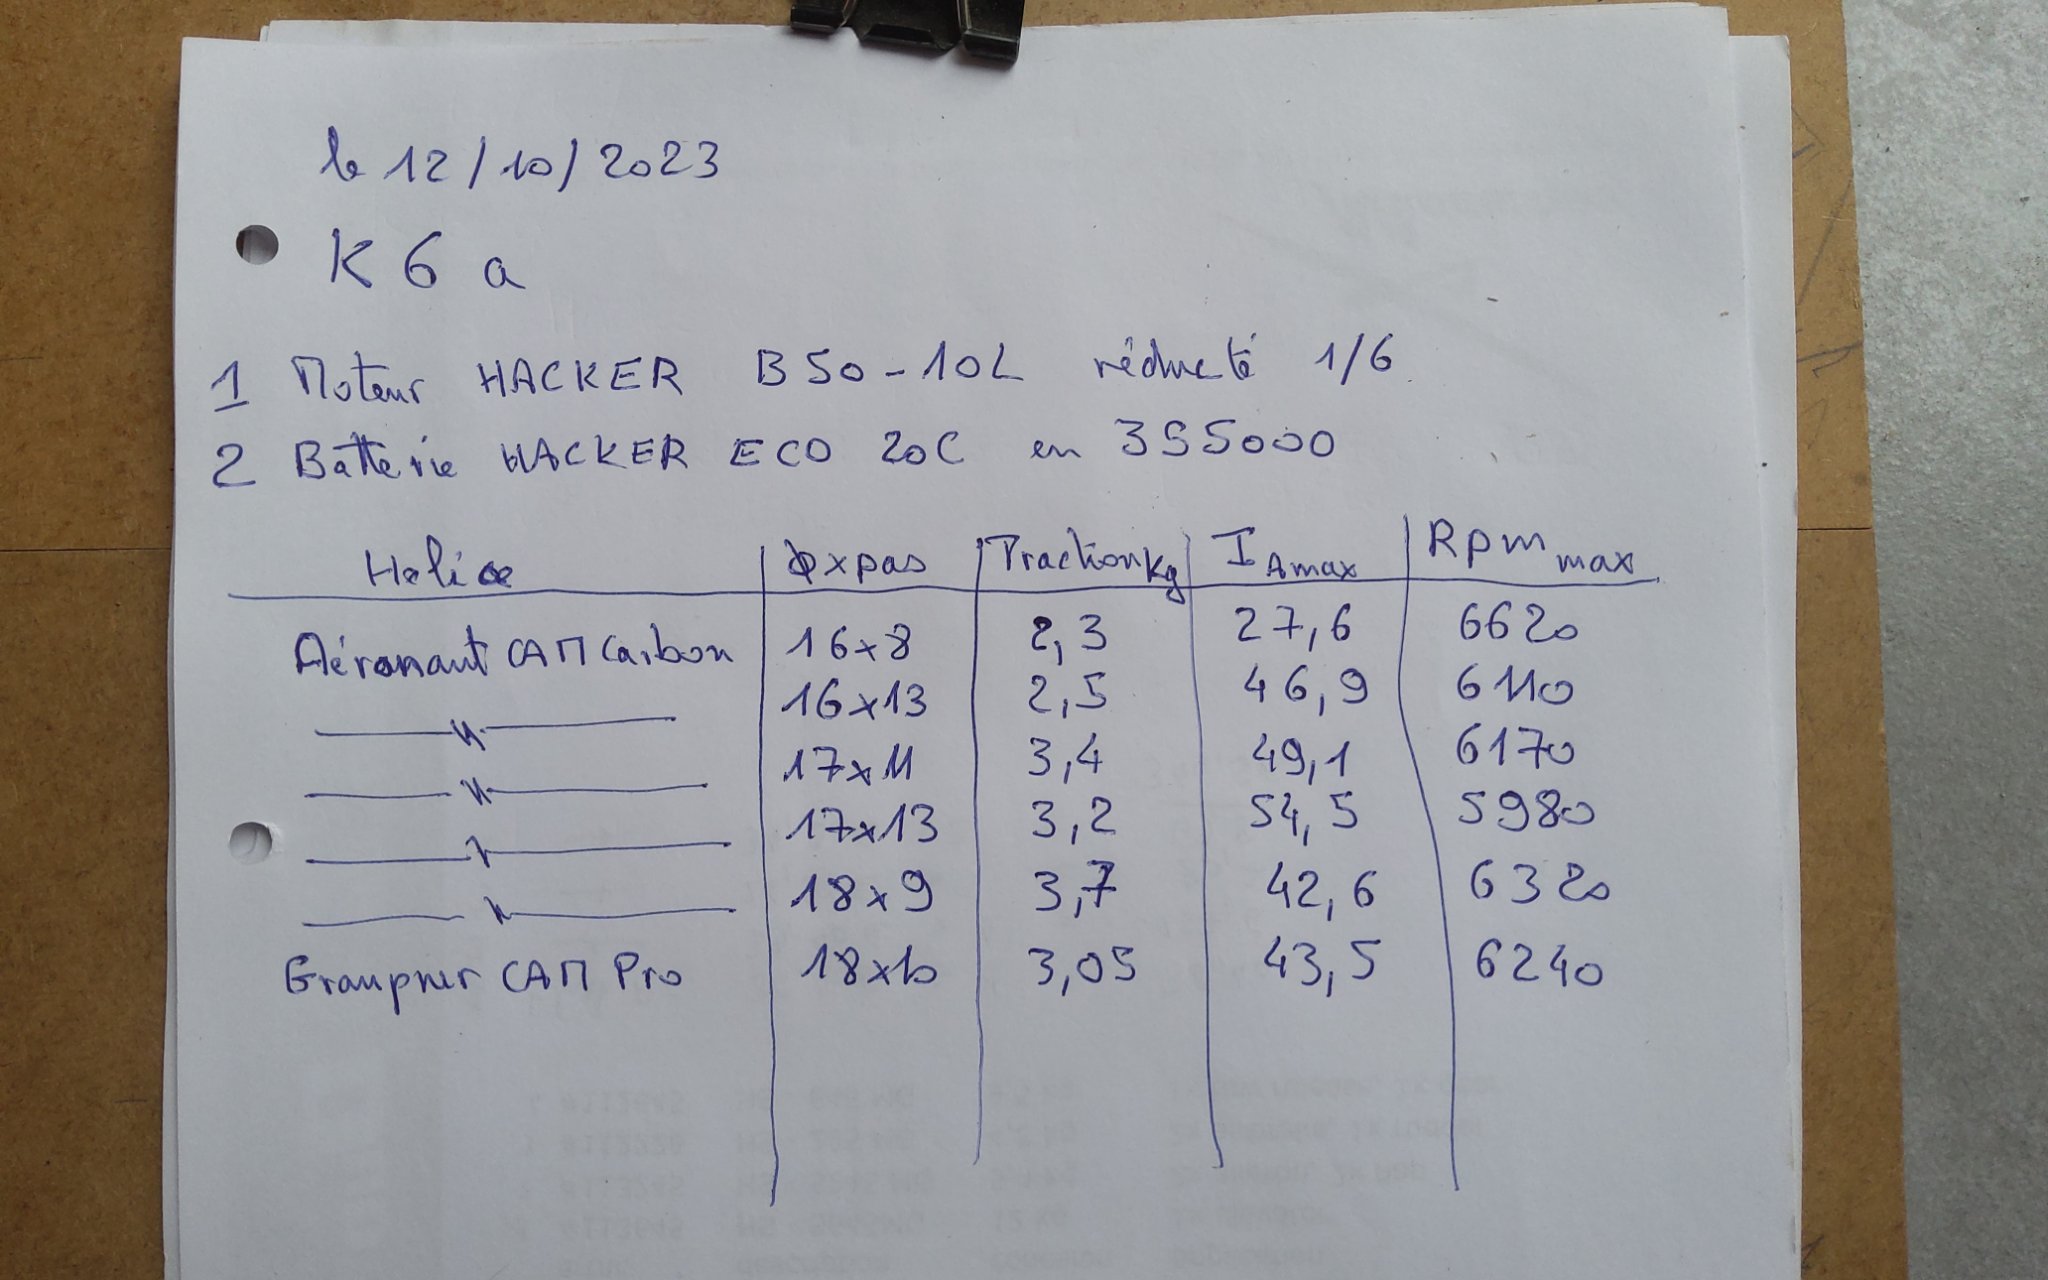 le 12/10/2023
K 6 a
1 Moteur HACKER B50-10L réducté 1/6
2 Batterie HACKER ECO 20C en 3S5000
Helice Φxpas Traction Kg I A max Rpm max
Aéronaut CAM Carbon 16x8 2,3 27,6 6620
—— " —— 16x13 2,5 46,9 6110
—— " —— 17x11 3,4 49,1 6170
—— " —— 17x13 3,2 54,5 5980
—— " —— 18x9 3,7 42,6 6320
Graupner CAM Pro 18x10 3,05 43,5 6240